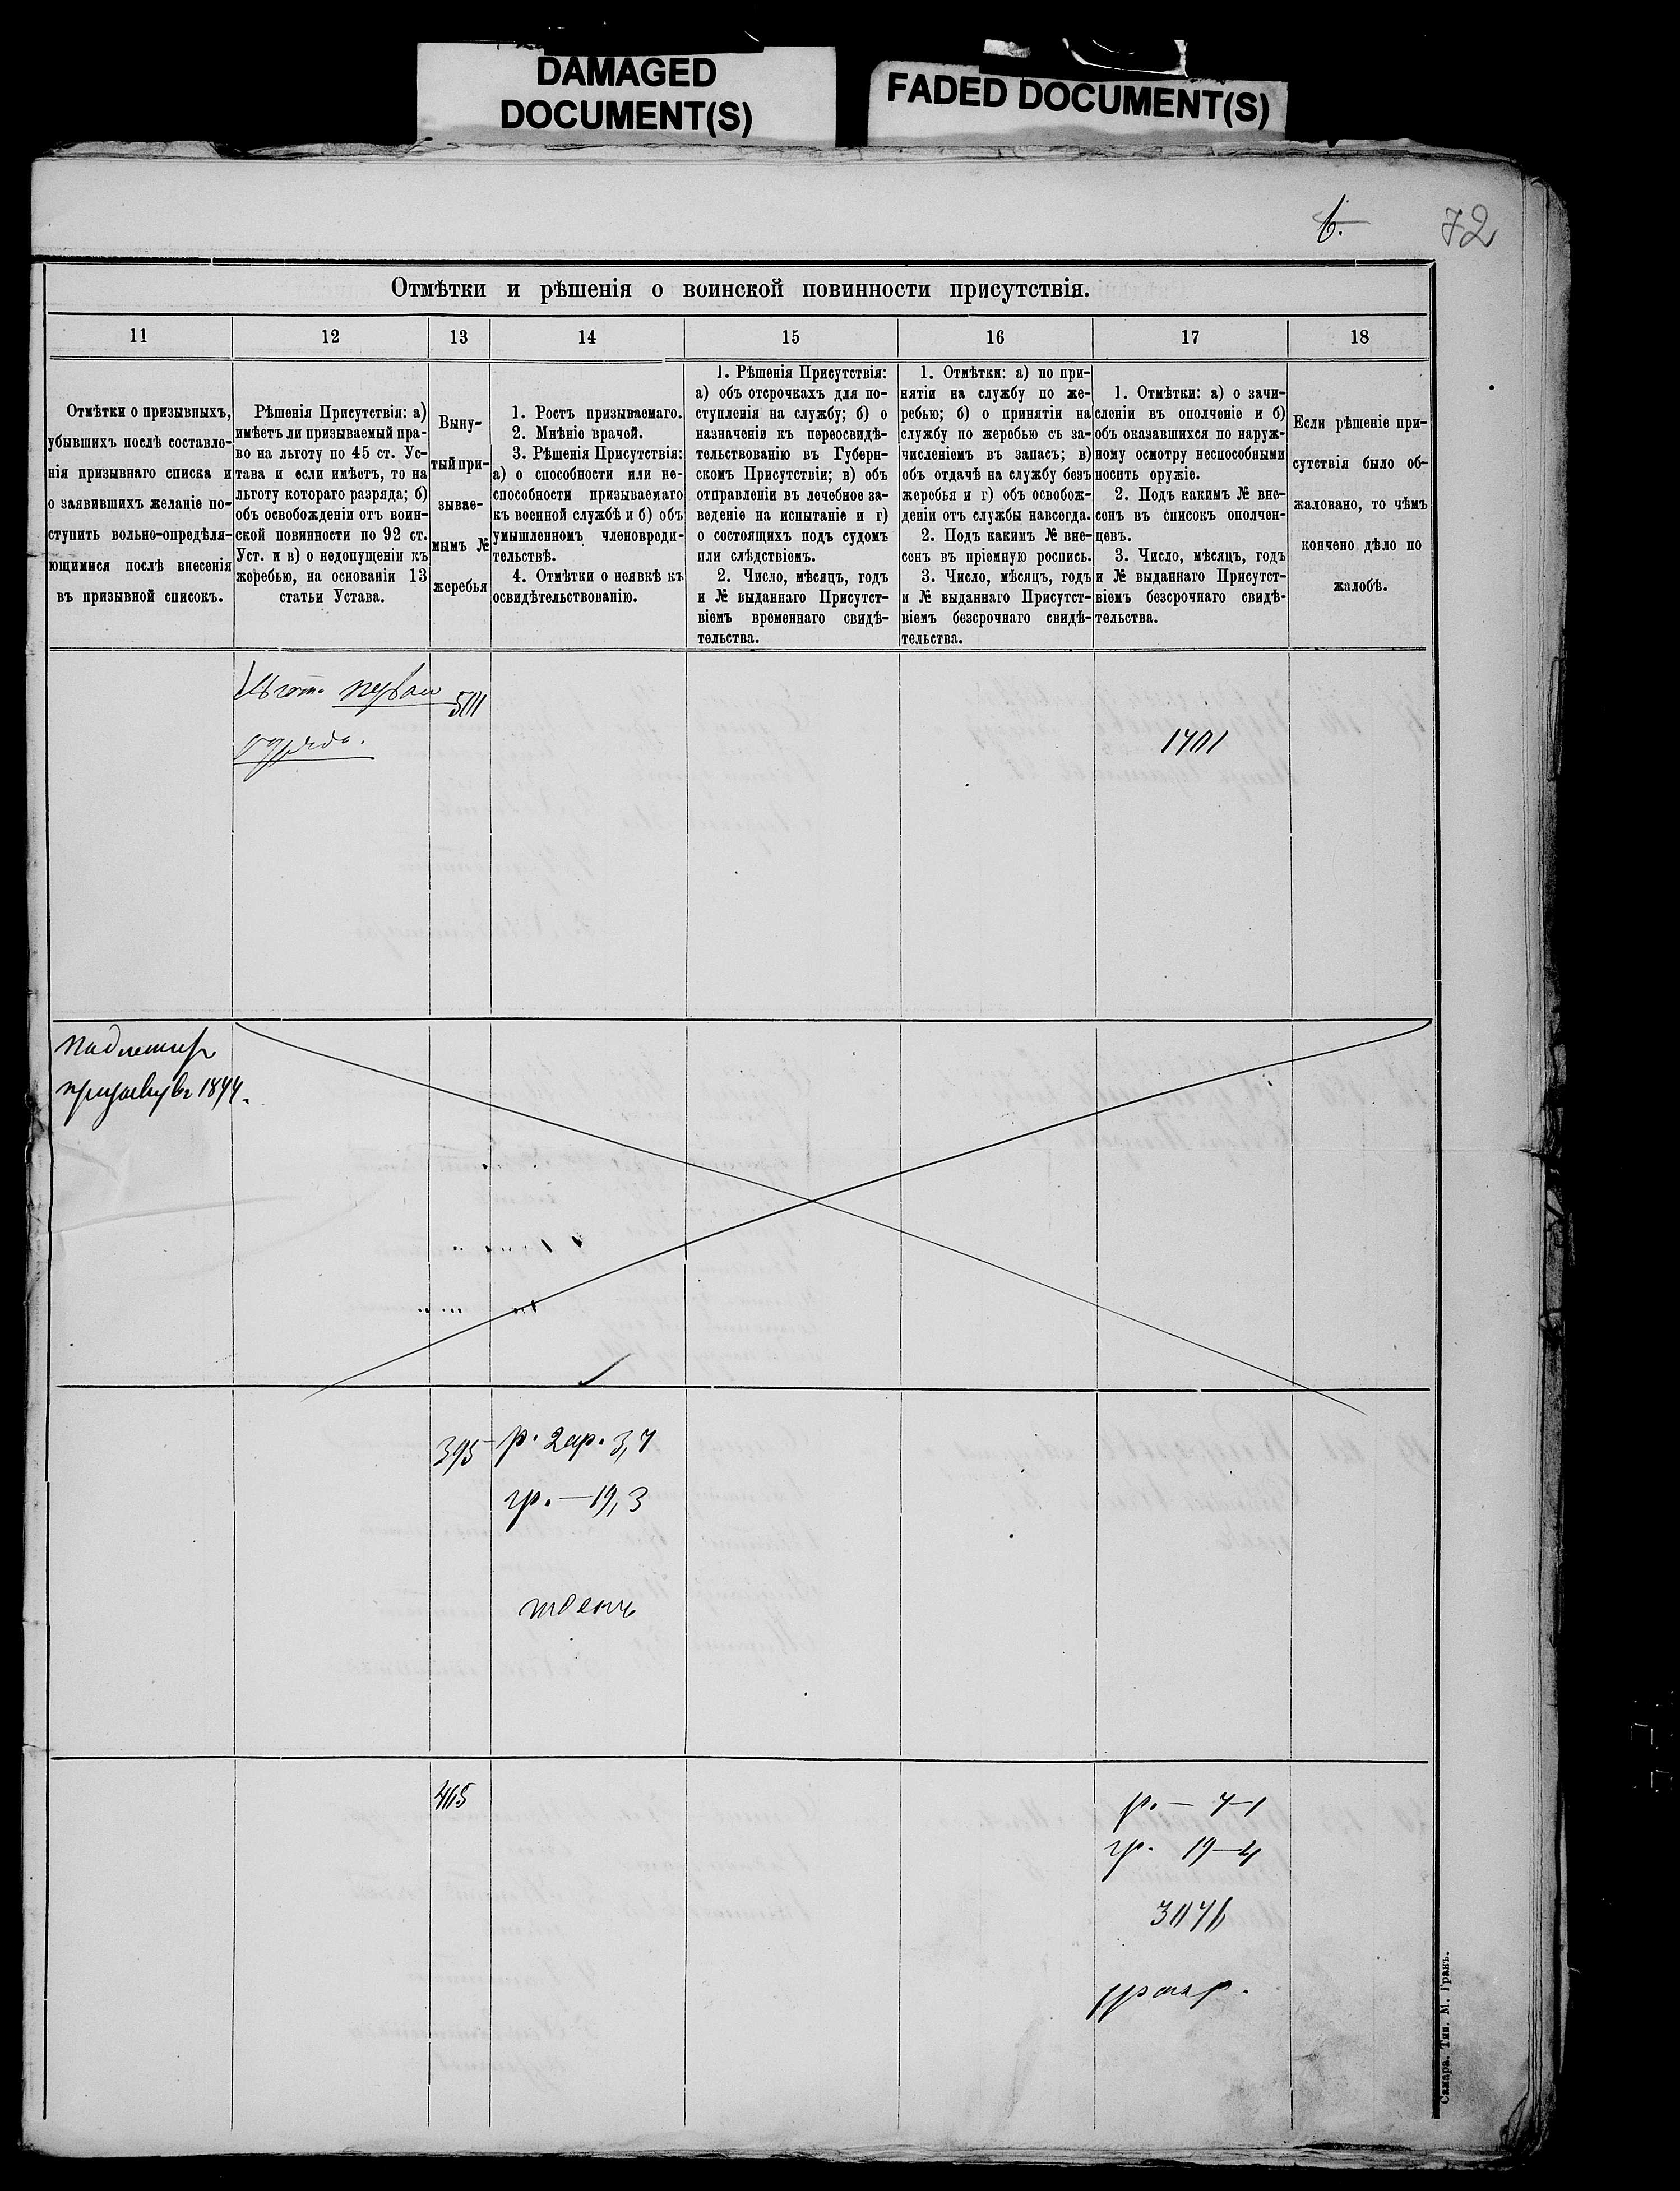 DAMAGED
DOCUMENT(S)
FADED DOCUMENT(S)
6.
72
Отмѣтки и рѣшенія о воинской повинности присутствія.
11
12
13
14
15
16
17
18
Отмѣтки о призывныхъ,
убывшихъ послѣ составле-
нія призывнаго списка и
о заявившихъ желаніе по-
ступить вольно-опредѣля-
ющимися послѣ внесенія
въ призывной списокъ.
Рѣшенія Присутствія: а)
имѣетъ ли призываемый пра-
во на льготу по 45 ст. Ус-
тава и если имѣетъ, то на
льготу котораго разряда; б)
объ освобожденіи отъ воин-
ской повинности по 92 ст.
Уст. и в) о недопущеніи къ
жеребью, на основаніи 13
статьи Устава.
Выну-
тый при-
зывае-
мымъ №
жеребья
1. Ростъ призываемаго.
2. Мнѣніе врачей.
3. Рѣшенія Присутствія:
а) о способности или не-
способности призываемаго
къ военной службѣ и б) объ
умышленномъ членовреди-
тельствѣ.
4. Отмѣтки о неявкѣ къ
освидѣтельствованію.
1. Рѣшенія Присутствія:
а) объ отсрочкахъ для по-
ступленія на службу; б) о
назначеніи къ переосвидѣ-
тельствованію въ Губерн-
скомъ Присутствіи; в) объ
отправленіи въ лечебное за-
веденіе на испытаніе и г)
о состоящихъ подъ судомъ
или слѣдствіемъ.
2. Число, мѣсяцъ, годъ
и № выданнаго Присутст-
віемъ временнаго свидѣ-
тельства.
1. Отмѣтки: а) по при-
нятія на службу по же-
ребью; б) о принятіи на
службу по жеребью съ за-
численіемъ въ запасъ; в)
объ отдачѣ на службу безъ
жеребья и г) объ освобож-
деніи отъ службы навсегда.
2. Подъ какимъ № вне-
сенъ въ пріемную роспись.
3. Число, мѣсяцъ, годъ
и № выданнаго Присутст-
віемъ безсрочнаго свидѣ-
тельства.
1. Отмѣтки: а) о зачи-
сленіи въ ополченіе и б)
объ оказавшихся по наруж-
ному осмотру неспособными
носить оружіе.
2. Подъ какимъ № вне-
сенъ въ списокъ ополчен-
цевъ.
3. Число, мѣсяцъ, годъ
и № выданнаго Присутст-
віемъ безсрочнаго свидѣ-
тельства.
Если рѣшеніе при-
сутствія было об-
жаловано, то чѣмъ
кончено дѣло по
жалобѣ.
501
1701
395
р. 2 ар. 3,7
гр. — 19,3
годенъ
465
р. — 7-1
гр. 19-4
Самара. Тип. М. Гранъ.